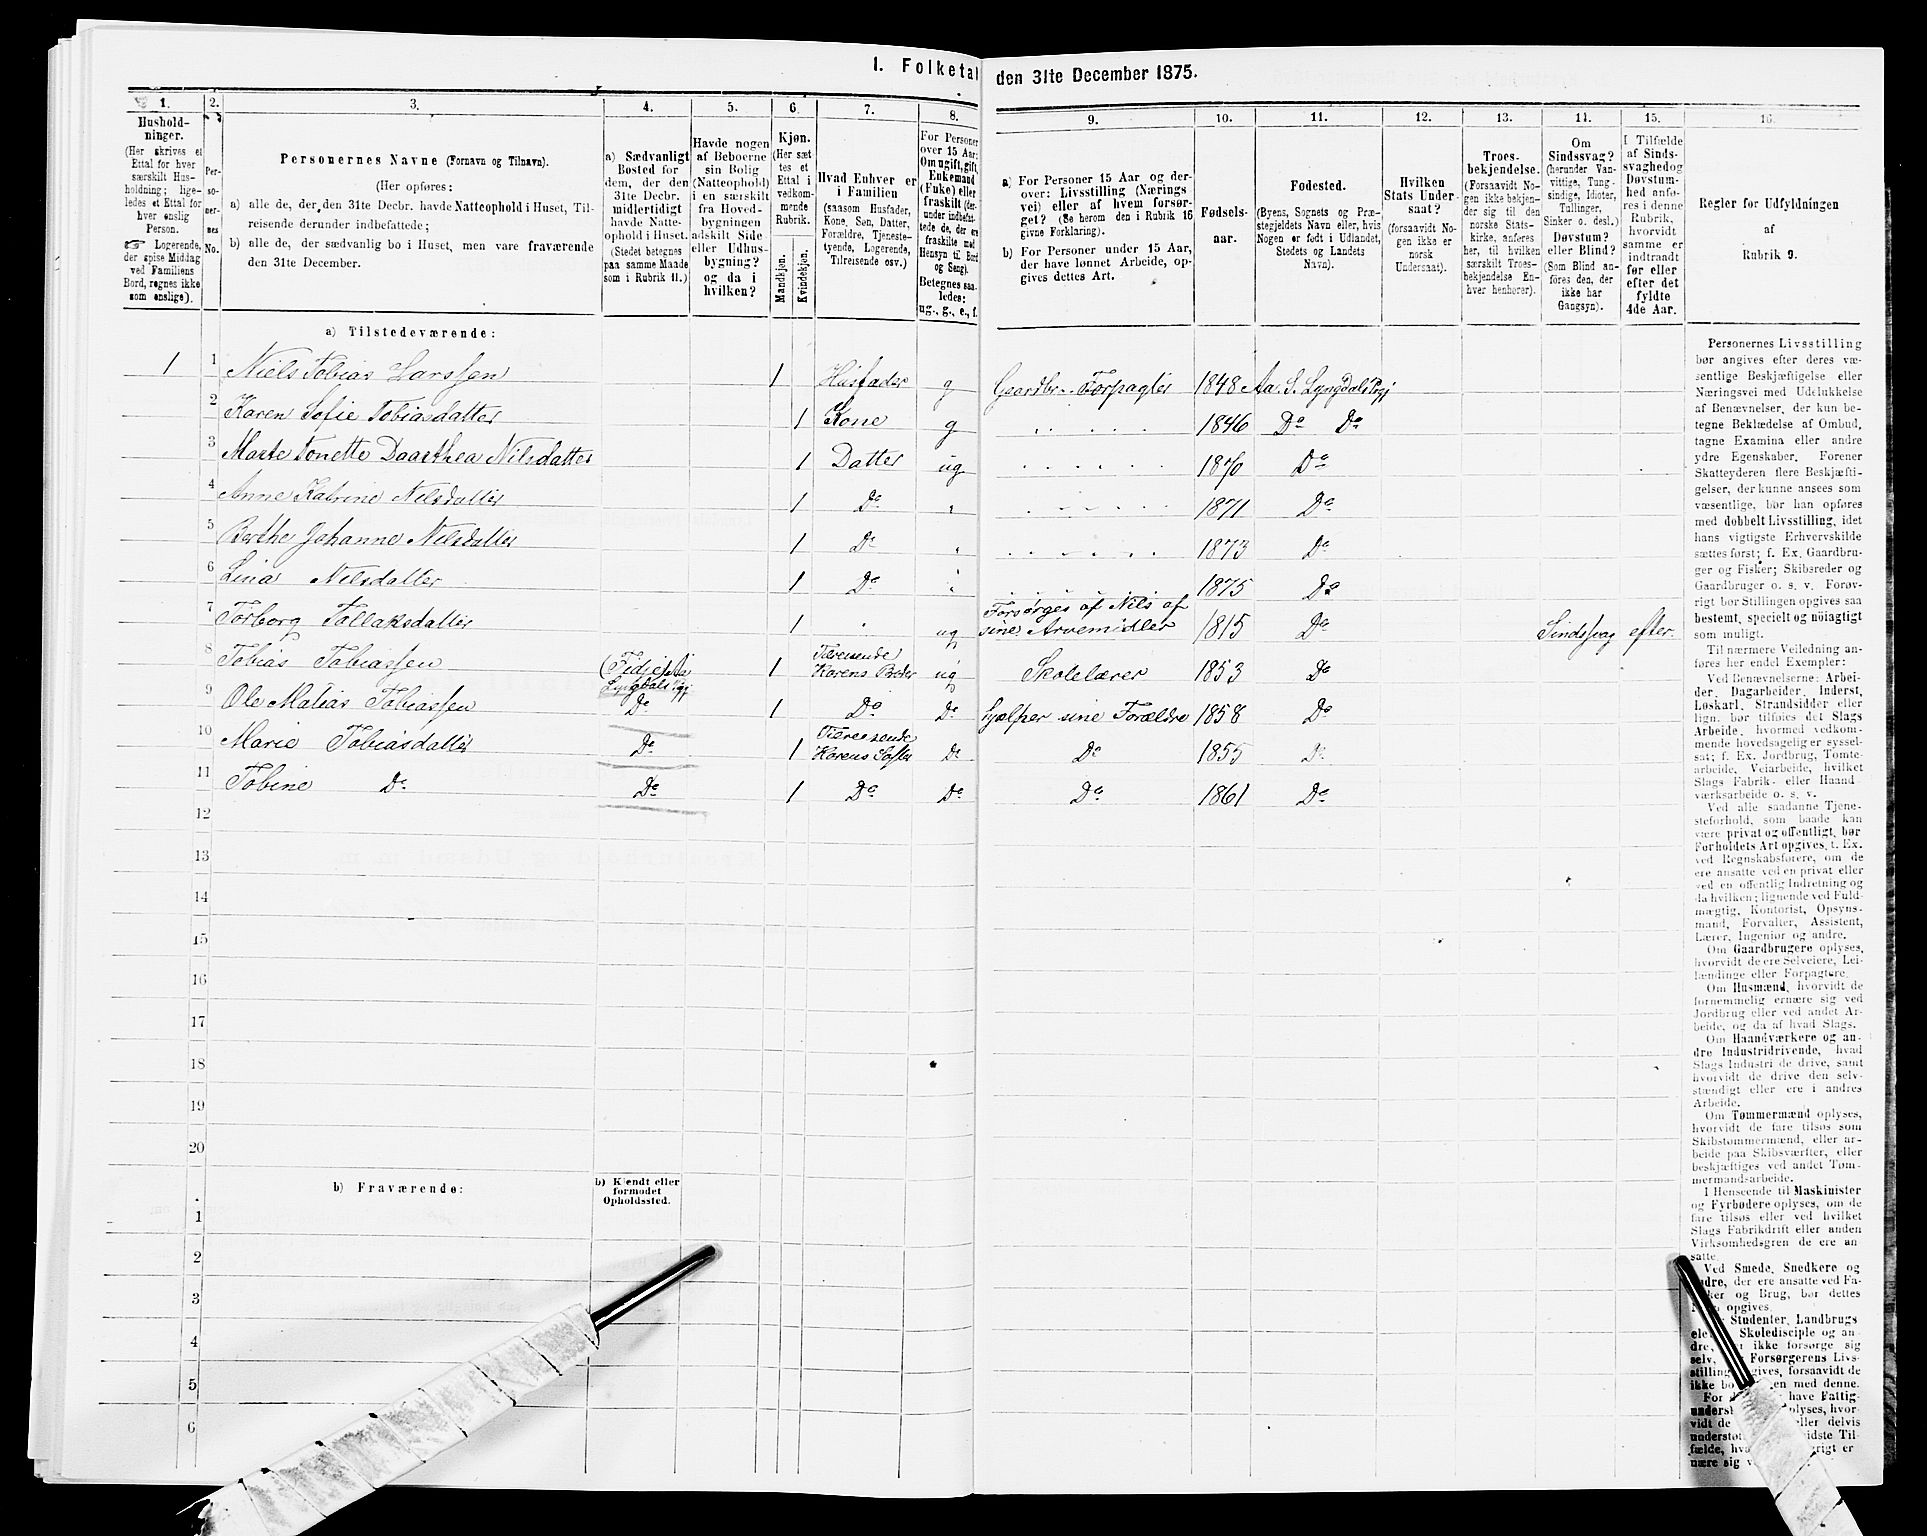 I. Folketal den 31te December 1875.
1. 2. 3. 4. 5. 6. 7. 8. 9. 10. 11. 12. 13. 14. 15. 16.
Hushold-
ninger.
(Her skrives et
Ettal for hver
særskilt Hus-
holdning; lige-
ledes et Ettal for
hver enslig
Person.
☞ Logerende,
der spise Middag
ved Familiens
Bord, regnes ikke
som enslige).
Per-
so-
ner-
nes
No.
Personernes Navne (Fornavn og Tilnavn).
(Her opføres:
a) alle de, der den 31te Decbr. havde Natteophold i Huset, Til-
reisende derunder indbefattede;
b) alle de, der sædvanlig bo i Huset, men vare fraværende
den 31te December.
a) Sædvanligt
Bosted for
dem, der den
31te Decbr.
midlertidigt
havde Natte-
ophold i Huset.
(Stedet betegnes
paa samme Maade
som i Rubrik 11.)
Havde nogen
af Beboerne
sin Bolig
(Natteophold)
i en særskilt
fra Hoved-
bygningen
adskilt Side-
eller Udhus-
bygning?
og da i
hvilken?
Kjøn.
(Her sæt
tes et
Ettal i
vedkom-
mende
Rubrik.
Mandkjøn.
Kvindekjøn.
Hvad Enhver er
i Familien
(saasom Husfader,
Kone, Søn, Datter,
Forældre, Tjeneste-
tyende, Logerende,
Tilreisende osv.)
For Personer
over 15 Aar:
Om ugift, gift,
Enkemand
(Enke) eller
fraskilt (der-
under indbefat-
tede de, der ere
fraskilte med
Hensyn til Bord
og Seng).
Betegnes saa-
ledes:
ug., g., e., f.
a) For Personer 15 Aar og der-
over: Livsstilling (Nærings
vei) eller af hvem forsør-
get? (Se herom den i Rubrik 16
givne Forklaring).
b) For Personer under 15 Aar,
der have lønnet Arbeide, op-
gives dettes Art.
Fødsels-
aar.
Fødested.
(Byens, Sognets og Præ-
stegjeldets Navn eller, hvis
Nogen er født i Udlandet,
Stedets og Landets
Navn).
Hvilken
Stats Under-
saat?
(forsaavidt No-
gen ikke er
norsk
Undersaat).
Troes-
bekjendelse.
(Forsaavidt No-
gen ikke bekjen-
der sig til den
norske Stats-
kirke, anføres
her, til hvilken
særskilt Troes-
bekjendelse En-
hver henhører).
Om
Sindssvag?
(herunder Van-
vittige, Tung-
sindige, Idioter,
Tullinger,
Sinker o. desl.)
Døvstum?
eller Blind?
(Som Blind an-
føres den, der
ikke har
Gangsyn).
I Tilfælde
af Sinds-
svaghed og
Døvstum-
hed anfø-
res i denne
Rubrik,
hvorvidt
samme er
indtraadt
før eller
efter det
fyldte
4de Aar.
Regler for Udfyldningen
af
Rubrik 9.
a) Tilstedeværende:
1 1 Niels Tobias Larssen 1 Husfader g Gaardbr. Forpagter 1848 Aa. S. Lyngdals Prgj
2 Karen Sofie Tobiasdatter 1 Kone g 1846 Do Do
3 Marte Tonette Daarthea Nilsdatter 1 Datter ug 1870 Do
4 Anne Katrine Nilsdatter 1 Do 1871 Do
5 Berthe Johanne Nilsdatter 1 Do 1873 Do
6 Lina Nilsdatter 1 Do 1875 Do
7 Torborg Tollaksdatter 1 ug Forsørges af Nils af
sine Arvemidler 1815 Do Sindssvag efter.
8 Tobias Tobiassen (Fidje Aa
Lyngdals Prgj 1 Tilreisende
Karens Broder ug Skolelærer 1853 Do
9 Ole Matias Tobiassen Do 1 Do Do hjælper sine Forældre 1858 Do
10 Marie Tobiasdatter Do 1 Tilreisende
Karens Søster Do Do 1855 Do
11 Tobine Do Do 1 Do Do Do 1861 Do
12
13
14
15
16
17
18
19
20
b) Fraværende:
b) Kjendt eller
formodet
Opholdssted.
1
2
3
4
5
6
Personernes Livsstilling
bør angives efter deres væ-
sentlige Beskjæftigelse eller
Næringsvei med Udelukkelse
af Benævnelser, der kun be-
tegne Beklædelse af Ombud,
tagne Examina eller andre
ydre Egenskaber. Forener
Skatteyderen flere Beskjæfti-
gelser, der kunne ansees som
væsentlige, bør han opføres
med dobbelt Livsstilling, idet
hans vigtigste Erhvervskilde
sættes først; f. Ex. Gaardbru-
ger og Fisker; Skibsreder og
Gaardbruger o. s. v. Forøv-
rigt bør Stillingen opgives saa
bestemt, specielt og nøiagtigt
som muligt.
Til nærmere Veiledning an-
føres her endel Exempler:
Ved Benævnelserne: Arbei-
der, Dagarbeider, Inderst,
Løskarl, Strandsidder eller
lign. bør tilføies det Slags
Arbeide, hvormed vedkom-
mende hovedsagelig er syssel-
sat; f. Ex. Jordbrug, Tomte-
arbeide, Veiarbeide, hvilket
Slags Fabrik- eller Haand-
værksarbeide o. s. v.
Ved alle saadanne Tjene-
steforhold, som baade kan
være privat og offentligt, bør
Forholdets Art opgives, t. Ex.
ved Regnskabsførere, om de
ere ansatte ved en privat eller
ved en offentlig Indretning og
da hvilken; lignende ved Fuld-
mægtig, Kontorist, Opsyns-
mand, Forvalter, Assistent,
Lærer, Ingeniør og andre.
Om Gaardbrugere oplyses,
hvorvidt de ere Selveiere, Lei-
lændinge eller Forpagtere.
Om Husmænd, hvorvidt de
fornemmelig ernære sig ved
Jordbrug eller ved andet Ar-
beide, og da af hvad Slags.
Om Haandværkere og an-
dre Industridrivende, hvad
Slags Industri de drive, samt
hvorvidt de drive den selv-
stændigt eller ere i andres
Arbeide.
Om Tømmermænd oplyses,
hvorvidt de fare tilsøs som
Skibstømmermænd, eller ar-
beide paa Skibsværfter, eller
beskjæftiges ved andet Tøm-
mermandsarbeide.
I Henseende til Maskinister
og Fyrbødere oplyses, om de
fare tilsøs eller ved hvilket
Slags Fabrikdrift eller anden
Virksomhedsgren de ere an-
satte.
Ved Smede, Snedkere og
andre, der ere ansatte ved Fa-
og Brug, bør dettes
opgives.
Studenter, Landbrugs
Skoledisciple og an-
dre, ikke forsørge sig
selv, Forsørgerens Livs-
stilling forsaavidt de
ikke med denne.
For have Fattig-
hvor-
vidt de eller delvis
sidste Til-
fælde,
nære sig